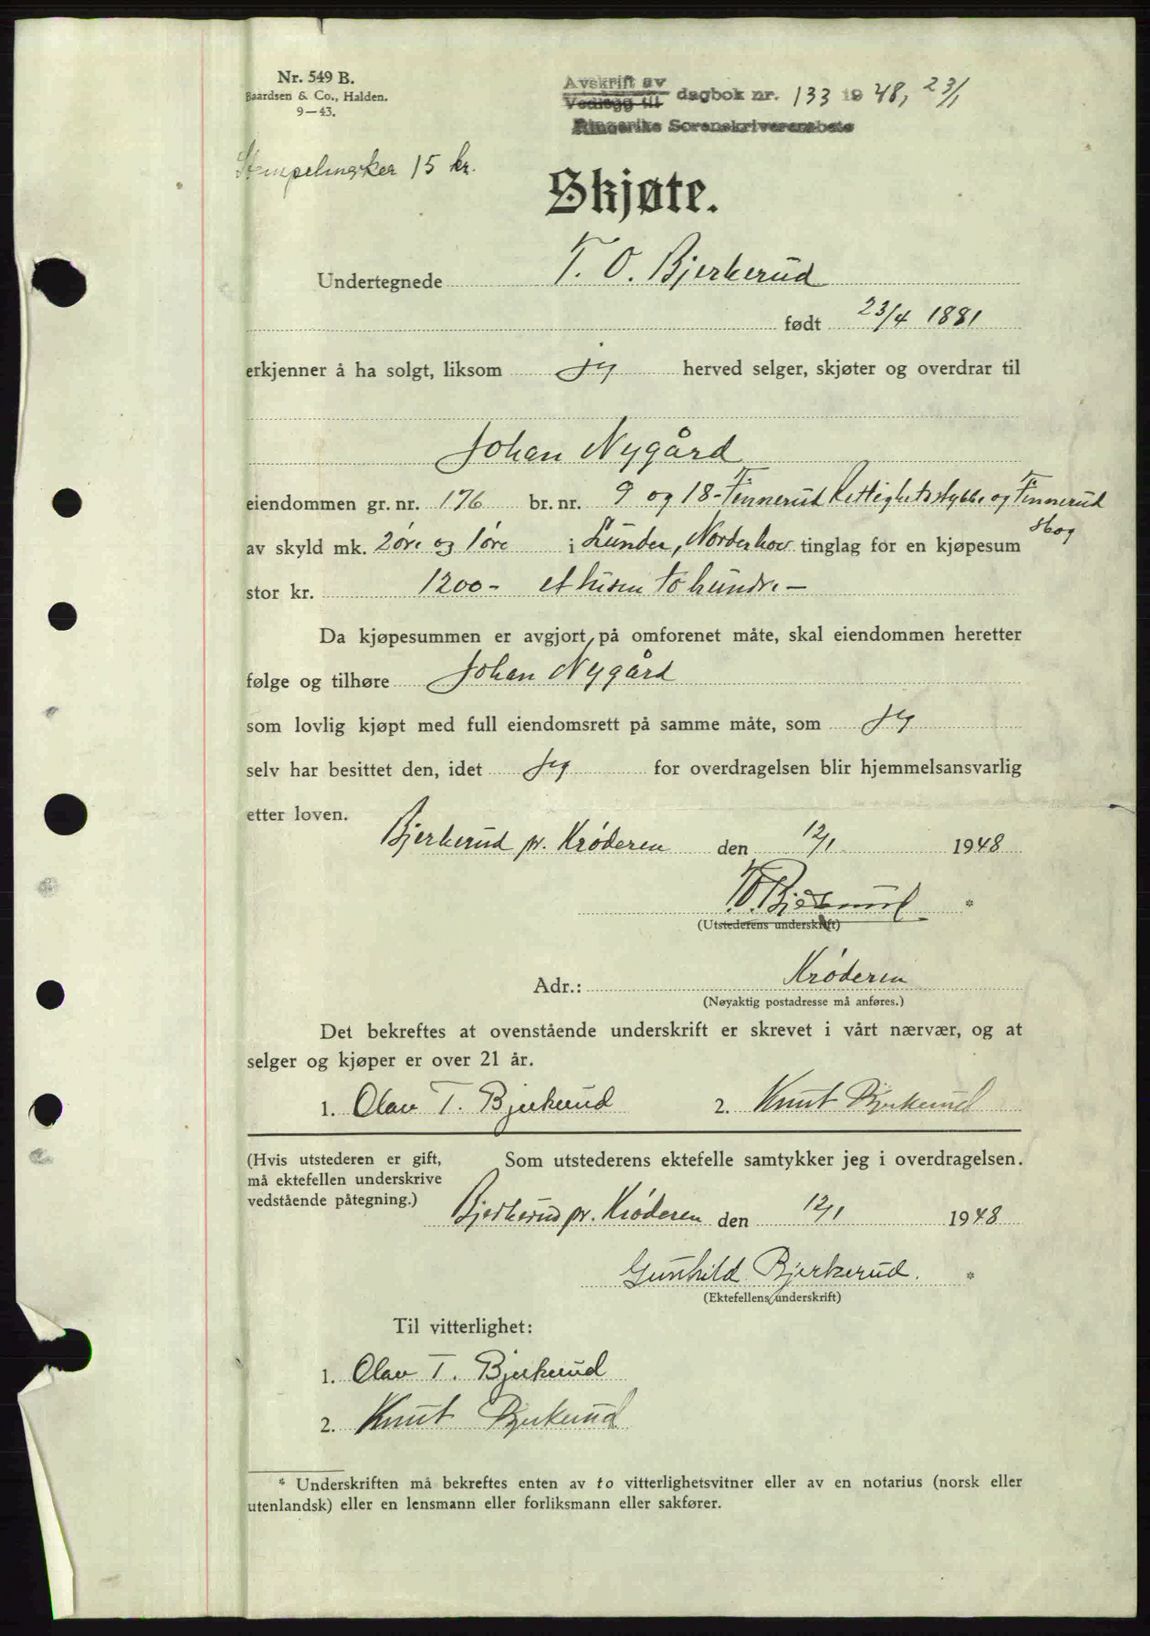 Nr. 549 B.
Baardsen & Co., Halden.
9—43.
Avskrift av
Vedlegg til dagbok nr. 133 1948, 23/1
Ringerike Sorenskriverembete
Stempelmerker 15 kr.
Skjøte.
Undertegnede T. O. Bjerkerud
født 23/4 1881
erkjenner å ha solgt, liksom jeg herved selger, skjøter og overdrar til
Johan Nygård
eiendommen gr. nr. 176 br. nr. 9 og 18 - Finnerud Rettighetsstykke og Finnerud
skog
av skyld mk. 2 øre og 1 øre i Lunder, Norderhov tinglag for en kjøpesum
stor kr. 1200- et tusen to hundre -
Da kjøpesummen er avgjort på omforenet måte, skal eiendommen heretter
følge og tilhøre Johan Nygård
som lovlig kjøpt med full eiendomsrett på samme måte, som jeg
selv har besittet den, idet jeg for overdragelsen blir hjemmelsansvarlig
etter loven.
Bjerkerud pr. Krøderen den 12/1 1948
T.O. Bjerkerud *
(Utstederens underskrift)
Adr.: Krøderen
(Nøyaktig postadresse må anføres.)
Det bekreftes at ovenstående underskrift er skrevet i vårt nærvær, og at
selger og kjøper er over 21 år.
1. Olav T. Bjerkerud 2. Knut Bjerkerud
(Hvis utstederen er gift, Som utstederens ektefelle samtykker jeg i overdragelsen.
må ektefellen underskrive
vedstående påtegning.)
Bjerkerud pr. Krøderen den 12/1 1948
Gunhild Bjerkerud. *
(Ektefellens underskrift)
Til vitterlighet:
1. Olav T. Bjerkerud
2. Knut Bjerkerud
* Underskriften må bekreftes enten av to vitterlighetsvitner eller av en notarius (norsk eller
utenlandsk) eller en lensmann eller forliksmann eller sakfører.